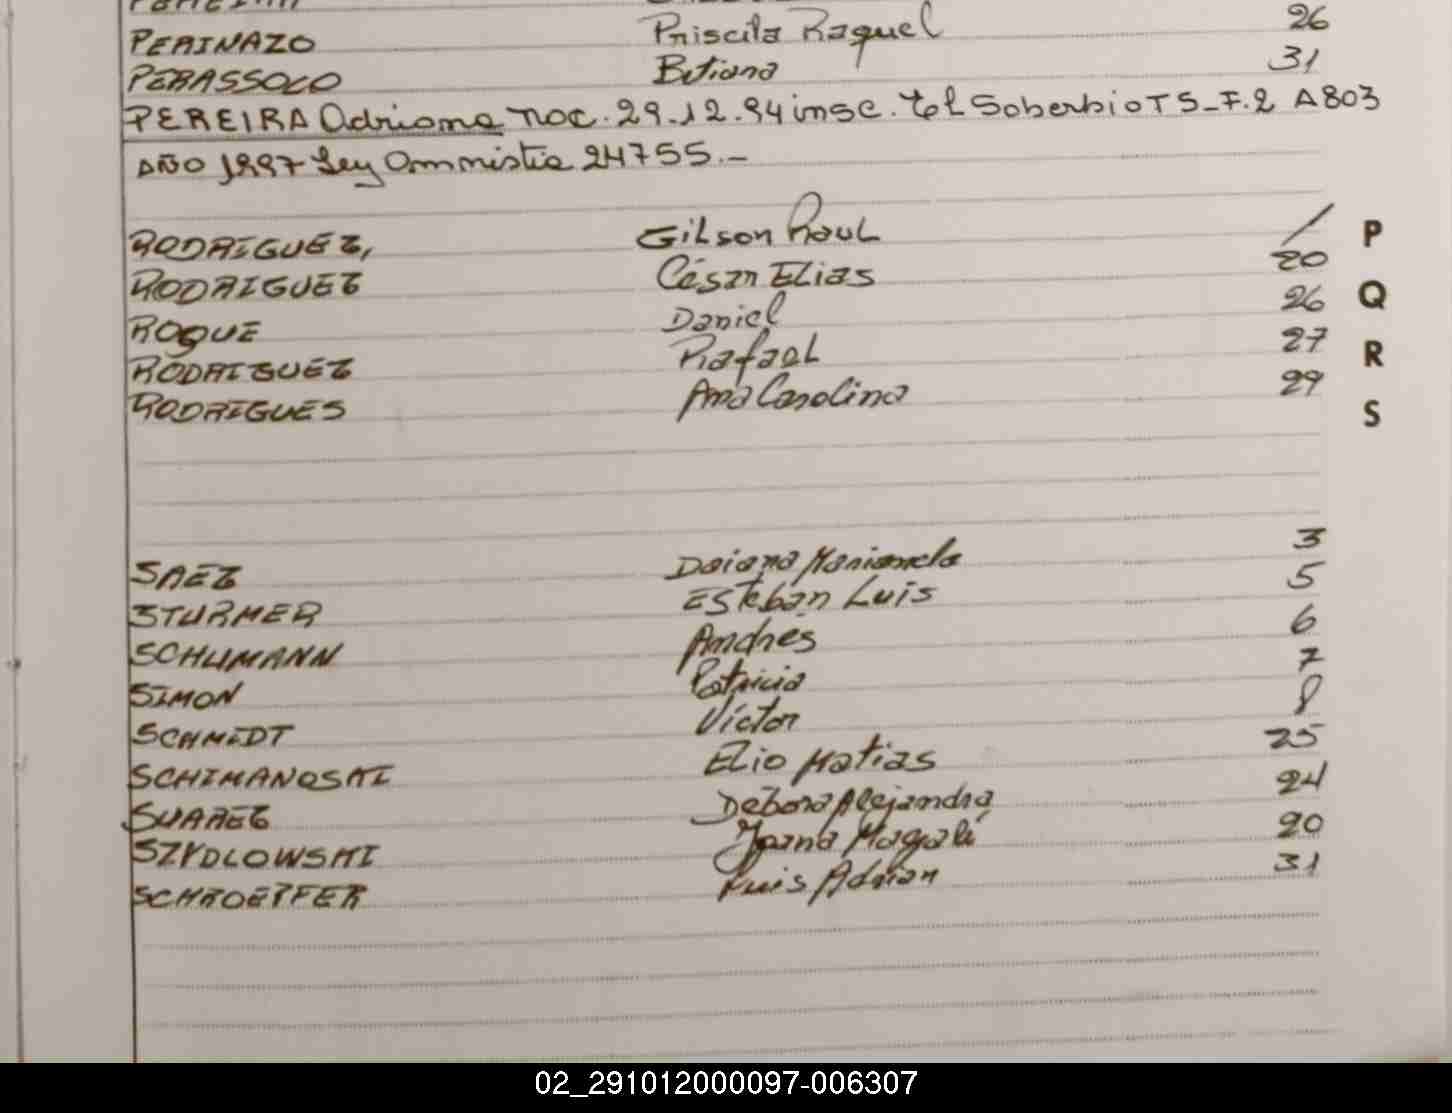 PERINAZO Priscila Raquel 26
PERASSOLO Betiana 31
PEREIRA Adriana nac. 29.12.94 insc. El Soberbio TS_F.2 A803
AÑO 1997 Ley Ammistia 24755.-
RODRIGUEZ, Gilson Raul / P
RODRIGUEZ César Elias 20
ROQUE Daniel 26 Q
RODRIGUEZ Rafael 27 R
RODRIGUES Ana Carolina 29 S
SAEZ Daiana Marianela 3
STURMER Esteban Luis 5
SCHUMANN Andrés 6
SIMON Patricia 7
SCHMIDT Víctor 8
SCHIMANOSKI Elio Matias 25
SUAREZ Débora Alejandra 24
SZYDLOWSKI Joana Magalí 20
SCHROEPFER Luis Adrian 31
02_291012000097-006307